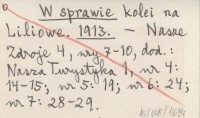 W sprawie kolei na
Liliowe. 1913. - Nasze
Zdroje 4, nry 7-10, dod.:
Nasza Turystyka 1, nr 4:
14-15; nr 5: 19; nr 6: 24;
nr 7: 28-29.